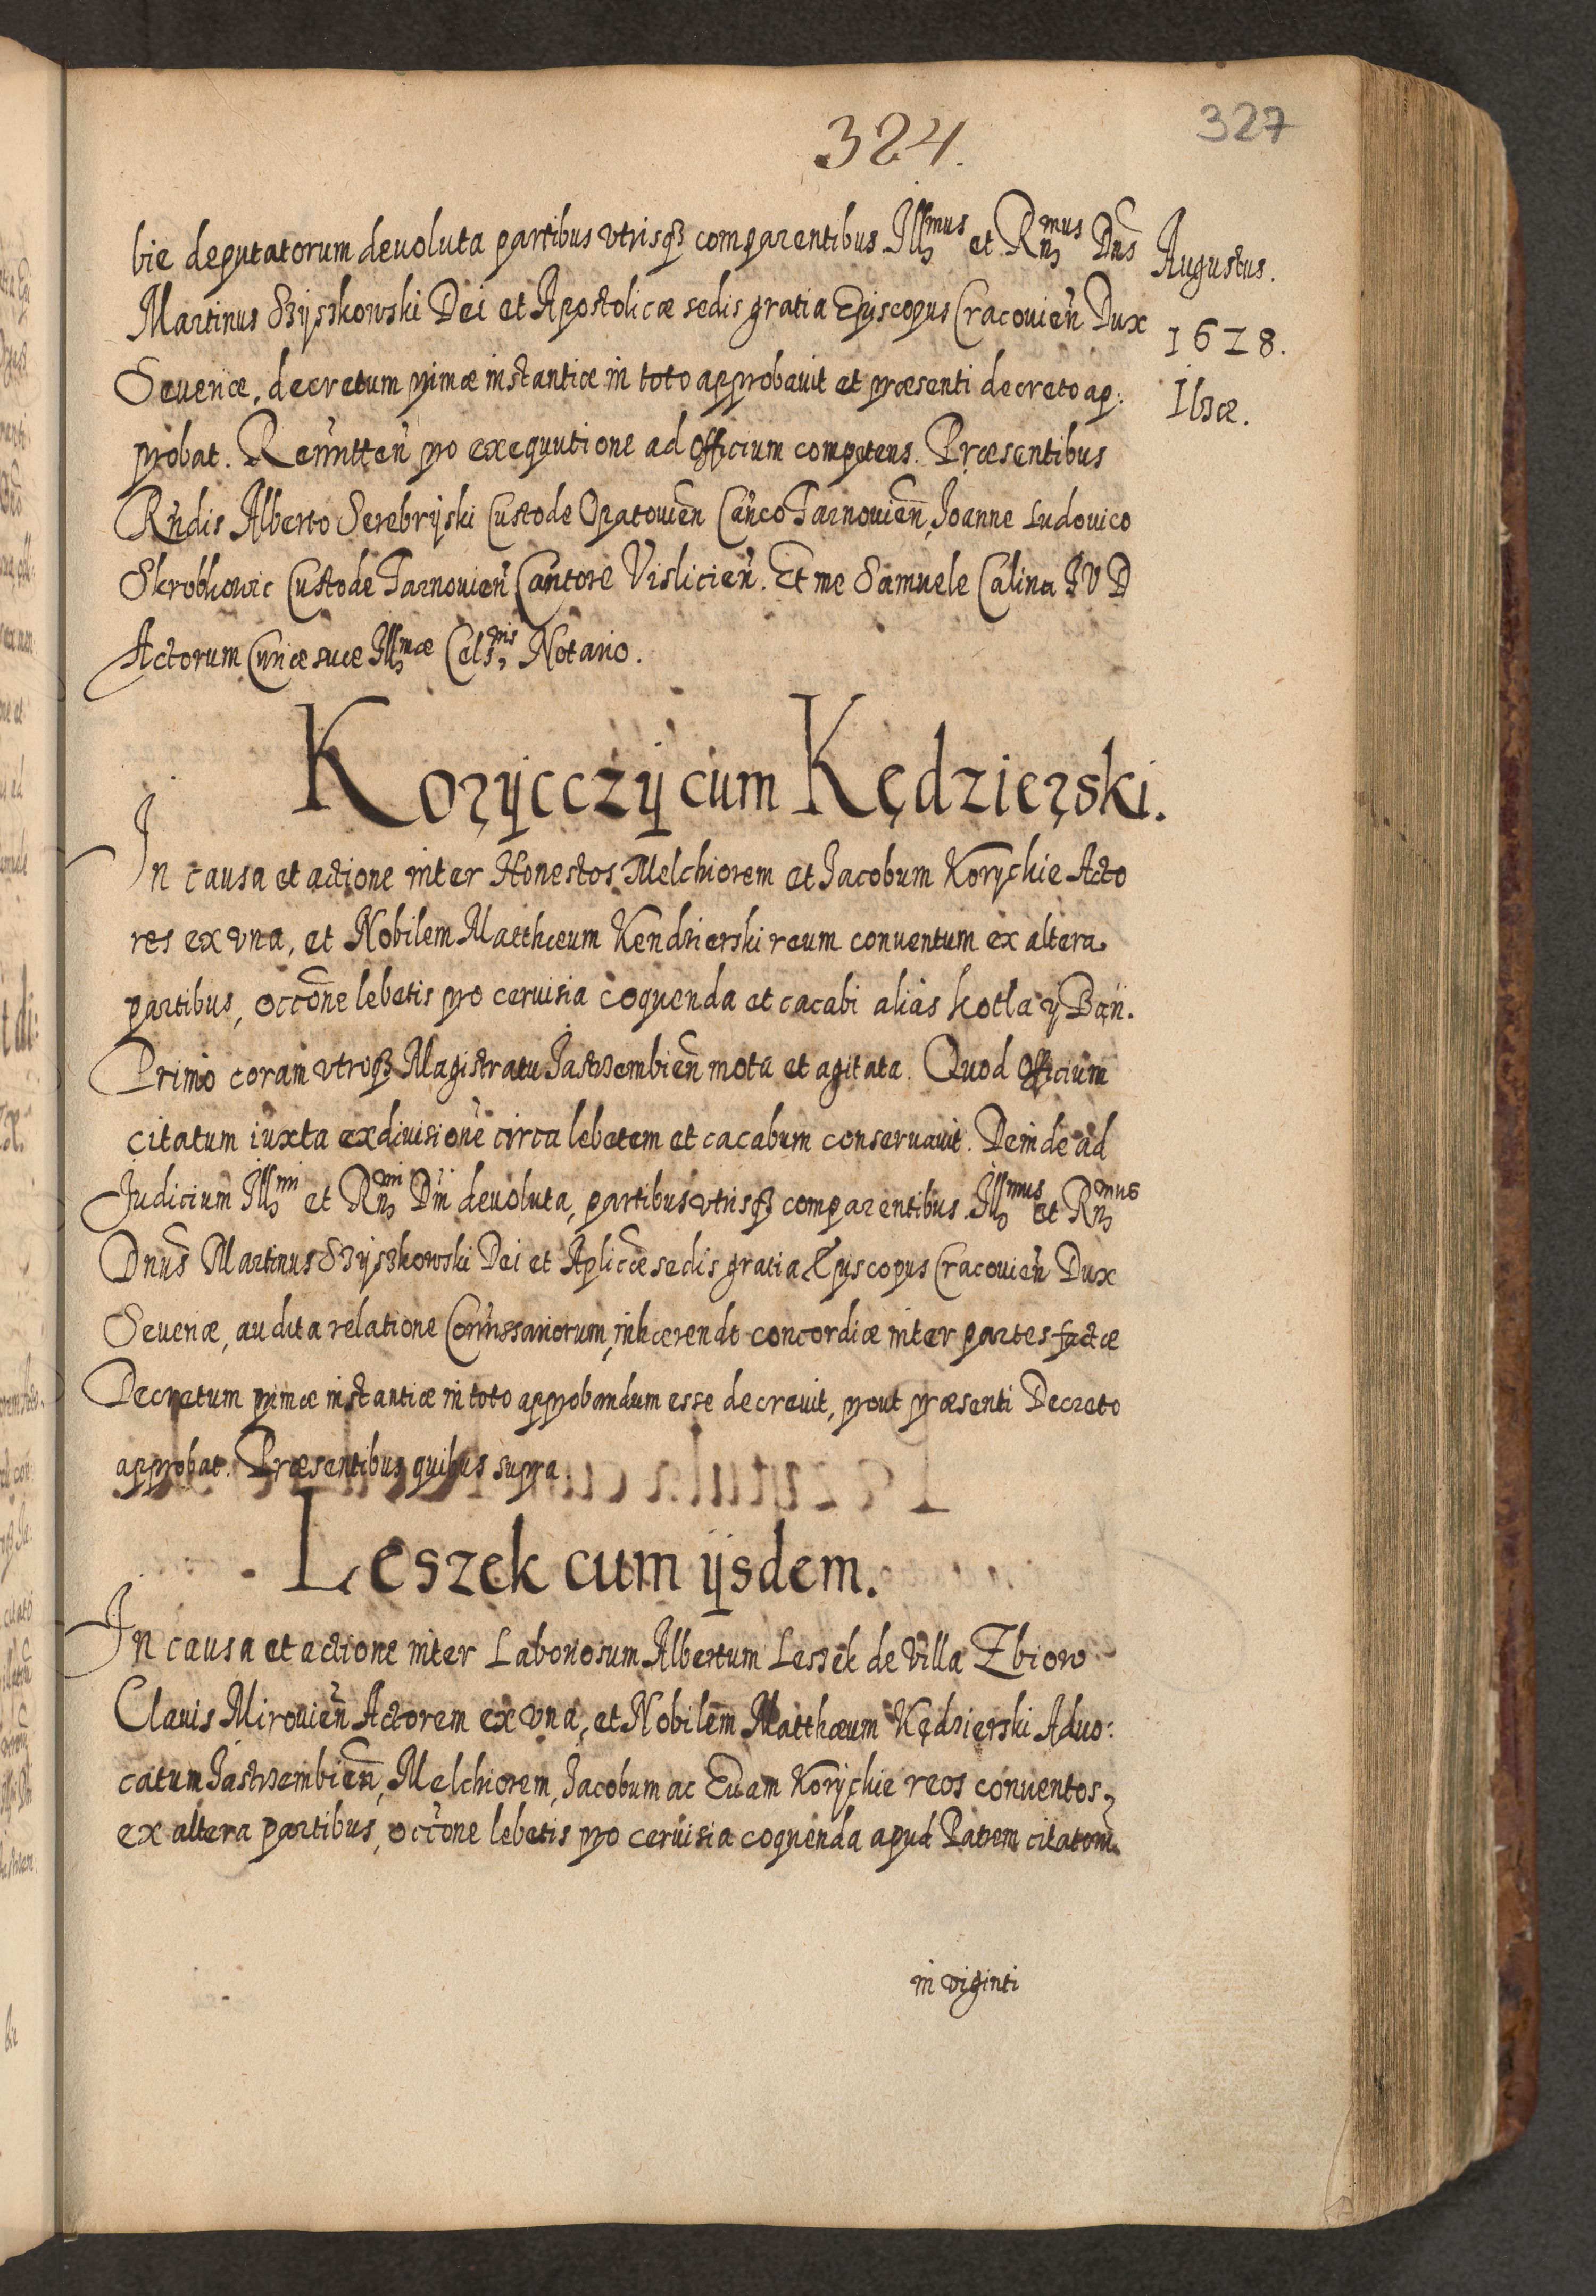 324.
327
bie deputatorum deuoluta partibus vtrisqȝ comparentibus Illꝫmus et Rnꝫmus Dns̃
Martinus Szyszkowski Dei et Apostolicæ sedis gratia Episcopus Cracouien̄ Dux
Seueriæ, decretum primæ instantiæ in toto approbauit et præsenti decreto ap:
probat. Remitten̄ pro exequutione ad Officium competens. Præsentibus
Rn̄dis Alberto Serebrÿski Custode Opatouien̄ Can̄co Tarnouien̄, Joanne Ludouico
Skrobkowic Custode Tarnouien̄ Cantore Vislicien̄. Et me Samuele Calina I V D
Actorum Curiæ suæ Illꝫmæ Celsꝫnis Notario.
Augustus.
1618.
Ilzæ.
Koryccży cum Kędzierski.
In causa et actione inter Honestos Melchiorem et Jacobum Koryckie Acto
res ex vna, et Nobilem Matthæum Kendzierski reum conuentum ex altera
partibus, occōne lebetis pro ceruisia coquenda et cacabi alias kotła y Bań.
Primo coram vtroqȝ Magistratu Jastrzembien̄ mota et agitata. Quod Officium
citatum iuxta ex diuisione circa lebetem et cacabum conseruauit. Deinde ad
Judicium Illꝫmi et Rnꝫmi Dn̄i deuoluta, partibus vtrisqȝ comparentibus. Illꝫmus et Rnꝫmus
Dnus̄ Martinus Szyszkowski Dei et Aplicǣ sedis gratia Episcopus Cracouien̄ Dux
Seueriæ, audita relatione Com̄issariorum, inhærendo concordiæ inter partes factæ
Decretum primæ instantiæ in toto approbandum esse decreuit, prout præsenti Decreto
approbat. Præsentibus quibus supra.
Leszek cum ÿsdem.
In causa et actione inter Laboriosum Albertum Leszek de Villa Zbiow
Clauis Mirouien̄ Actorem ex vna, et Nobilem Matthæum Kędzierski Aduo:
catum Jastrzembien̄, Melchiorem, Jacobum ac Euam Korÿckie reos conuentos,
ex altera partibus, occōne lebetis pro ceruisia coquenda apud Patrem citatorū
in viginti